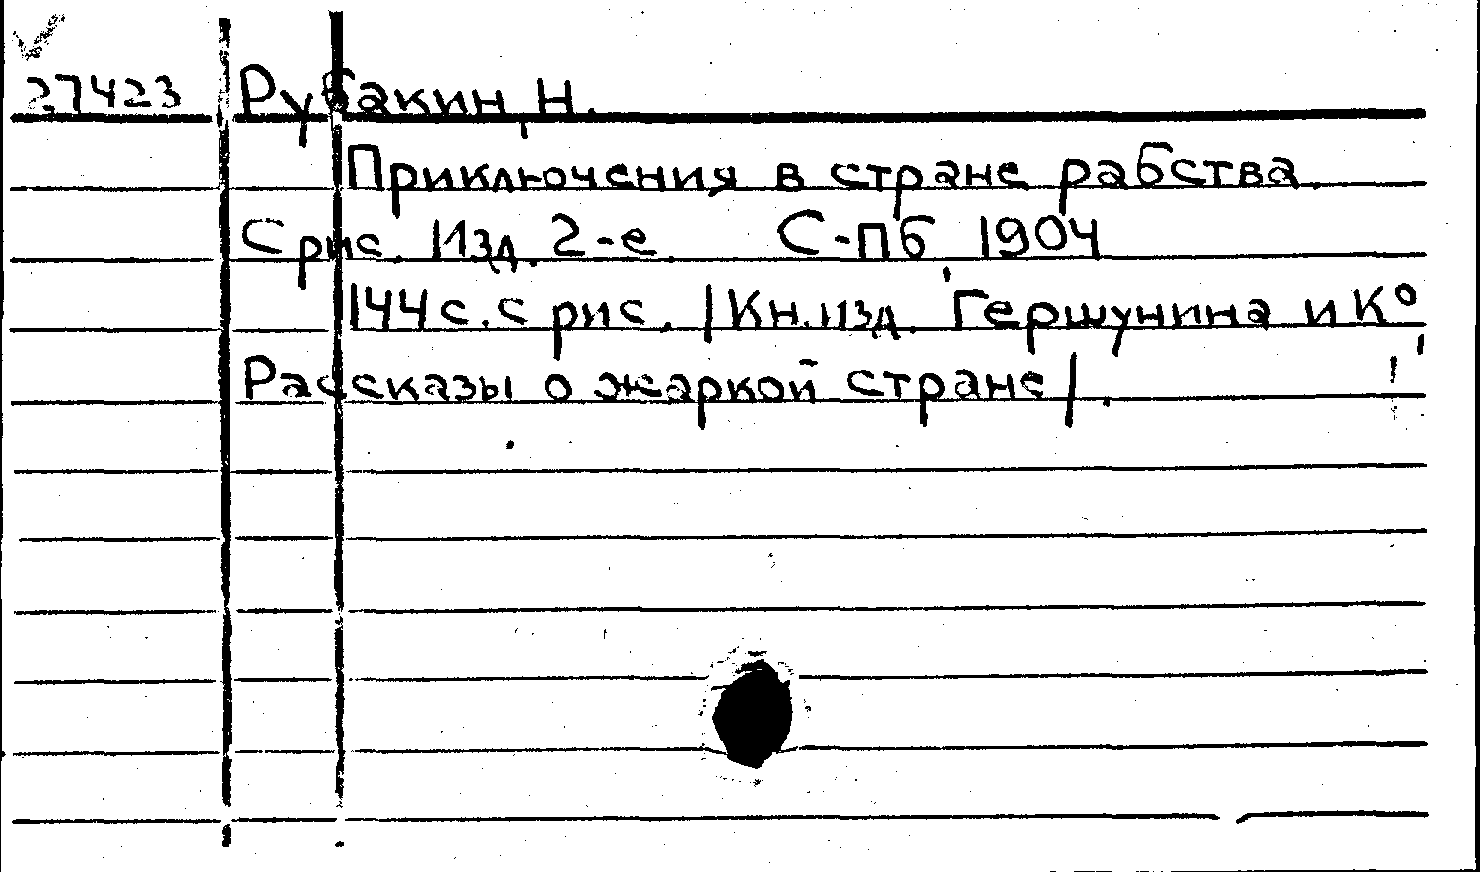 27423 Рубакин, Н.
Приключения в стране рабства.
С рис. Изд. 2-е. С-Пб, 1904
144 с. с рис. /Кн. изд. Гершунина и К°,
Рассказы о жаркой стране/.